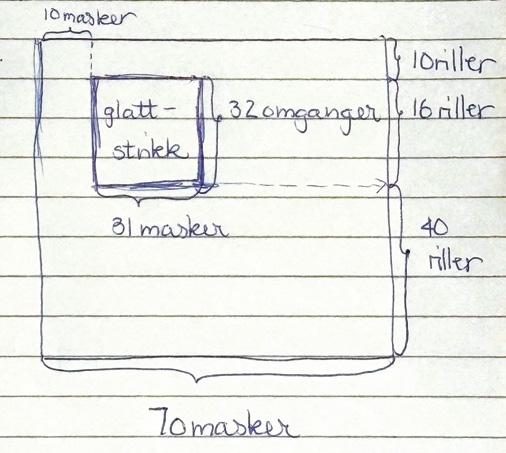 10 masker
10 riller
glatt-
strikk
32 omganger
16 riller
31 masker
40
riller
70 masker